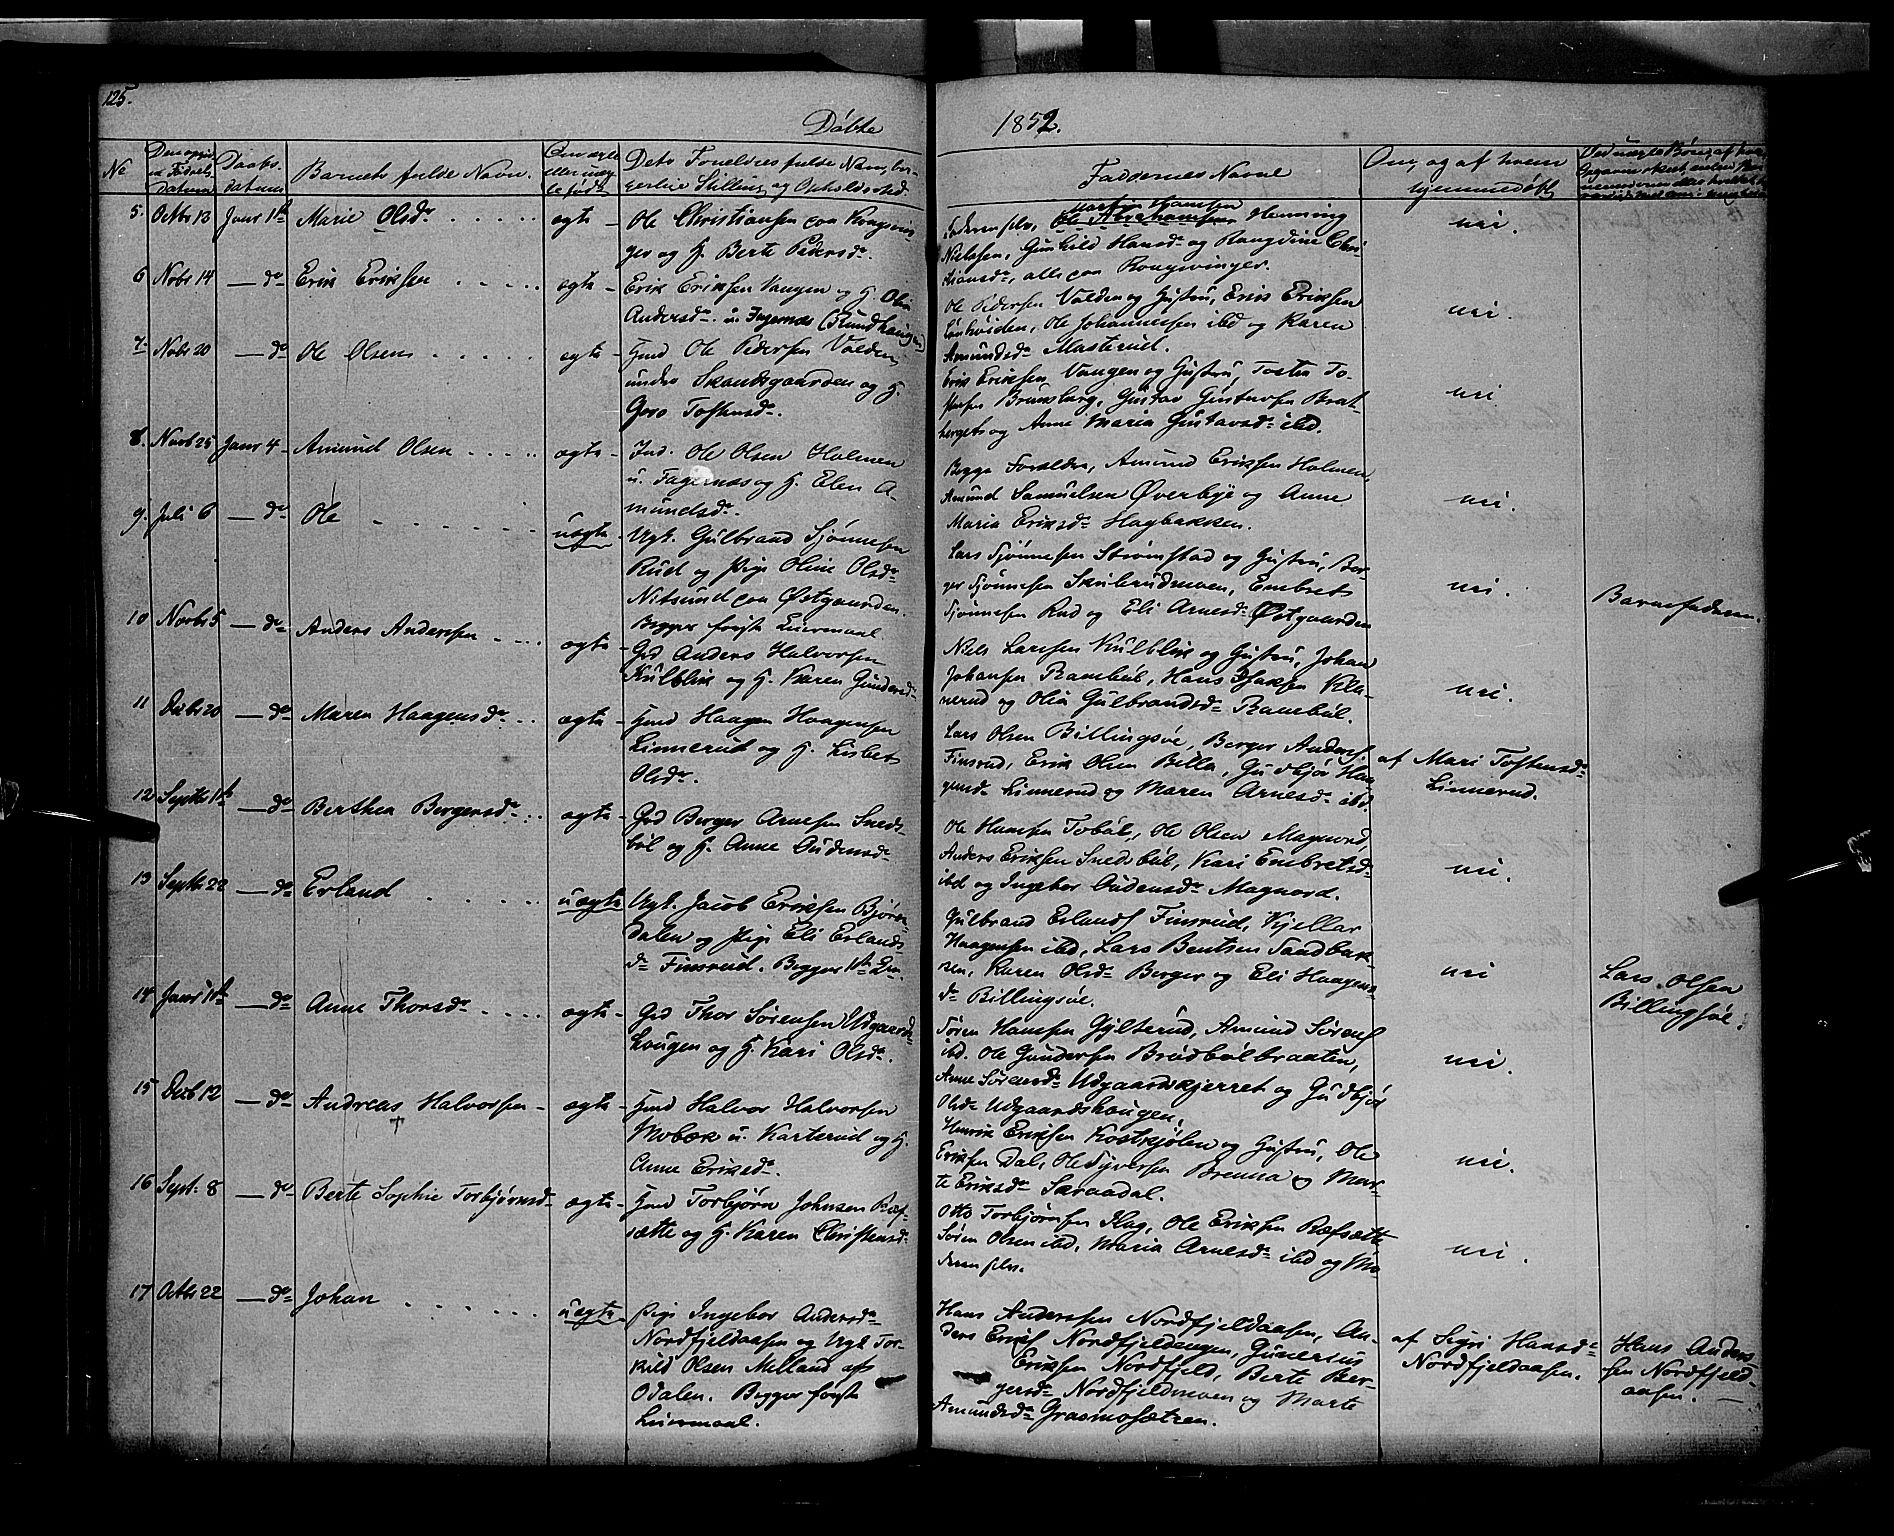 125.
Døbte
1852.
No
Daabs-
datum
Barnets fulde Navn.
Faddernes Navne
Om, og af hvem
hjemmedøbt
5. Octbr 13 Januar 1ste Marie Olsdr ægte
Ole Christiansen paa Kongsvin-
ger og H. Berte Pedersdr.
Faderen selv, Henning
Nielssen, Gunhild Hansdr og
alle paa Kongsvinger.
nei.
6 Novbr 14 — do Erik Eriksen ægte
Erik Eriksen Vangen og H. Olia
Andersdr. u.
Ole Pedersen Valden og Hustru, Erik Eriksen
Ole Johannessen ibd og Karen
Amundsdr Masterud.
nei.
7 Novbr 20 — do Ole Olsen ægte
Hmd Ole Pedersen Valden
under Skandsgaarden og H.
Goro Tostensdr.
Erik Eriksen Vangen og Hustru, Tosten To-
stensen Brunsberg, Gustav Gustavsen Brat-
berget og Anne Maria Gustavsdr ibd.
nei
8. Novbr 25 Januar 4 Amund Olsen ægte
Ind. Ole Olsen Holmen
u. Fagernæs og H. Elen A-
mundsdr.
Begge Forældre, Amund Eriksen Holmen,
Amund Samuelsen Øverbye og Anne
Maria Eriksdr Hagbakken.
nei.
9. Juli 6 — do Ole uægte
Ugk. Gulbrand Sjønnesen
Rud og Pige Oline Olsdr
Nitsund paa Østgaarden.
Begges første Leiermaal
Lars Sjønnesen Strømstad og Hustru, Ber-
ger Sjønnesen Skinbrudmoen, Embret
Sjønnesen Rud og Eli Arnesdr Østgaarden
nei.
Barnefaderen.
10 Novbr 5 — do Anders Andersen ægte
Grd Anders Halvorsen
Kulblik og H. Karen Gundersdr
Niels Larssen Kulblik og Hustru, Johan
Johansen Rambøl, Hans Isaksen Kla-
nerud og Olia Gulbrandsdr Rambøl.
nei.
11 Decbr 20 — do Maren Haagensdr ægte
Hmd Haagen Haagensen
Linnerud og H. Lisbet
Olsdr.
Lars Olsen Billingsøe, Berger Anders.
Finsrud, Erik Olsen Billa, Gudbjør Haa-
gensdr Linnerud og Maren Arnesdr ibd.
af Mari Tostensdr
Linnerud.
12 Septbr 1st — do Berthea Bergersdr ægte
Grd Berger Arnesen Sneds-
bøl og H. Anne Audensdr
Ole Hansen Tobøl, Ole Olsen Magnord,
Anders Eriksen Snedsbøl, Kari Embretsdr
ibd og Ingebor Audensdr Magnord.
nei.
13 Septbr 22 — do Erland uægte
Ugk. Jacob Eriksen Bjørn-
dalen og Pige Eli Erlands-
dr Finsrud. Begges 1ste
Gulbrand Erlands. Finsrud, Kjellar
Haagensen ibd, Lars Bentsen Sandbak-
ken, Karen Olsdr Berger og Eli Haagens-
dr Billingsøe.
nei
Lars Olsen
Billingsøe.
14 Januar 1ste — do Anne Thorsdr ægte
Grd Thor Sørensen Udgaards-
hougen og H. Kari Olsdr.
Søren Hansen Gylterud, Amund Sørens.
ibd. Ole Gundersen Brødbølbraaten,
Anne Sørensdr Udgaardskjerret og Gudbjør
Olsdr Udgaardshougen.
nei.
15 Decb 12 — do Andreas Halvorsen ægte
Hmd Halvor Halvorsen
Mobæk u. Karterud og H.
Anne Eriksdr.
Henrik Eriksen Kostkjølen og Hustru, Ole
Eriksen Dal, Ole Syversen Brenna og Mar-
te Eriksdr Skraadal.
nei.
16 Sept. 8 — do Berte Sophie Torbjørnsdr ægte
Hmd Torbjørn Johnsen Ræf-
sætte og H. Karen Christensdr
Otto Torbjørnsen Hag, Ole Eriksen Ræfsætte
Søren Olsen ibd, Maria Arnesdr ibd og Mo-
deren selv.
nei.
17 Octbr 22 — do Johan uægte
Pige Ingebor Andersdr
Nordfjeldaasen og Ugk Tor-
kild Olsen Melland af
Odalen. Begges første
Leiermaal.
Hans Andersen Nordfjeldaasen, An-
ders Eriks. Nordfjeldengen, Gunerius
Eriksen Nordfjeld, Berte Ber-
gersdr Nordfjeldmoen og Marte
Amundsdr Grasmosætren.
af Sigri Hansdr
Nordfjeldaasen.
Hans Anders-
sen Nordfjeld-
aasen.